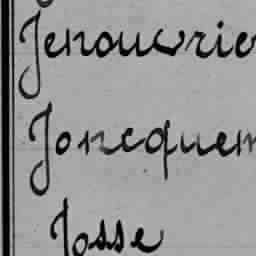 Jenouvrie
Joncquem
Josse